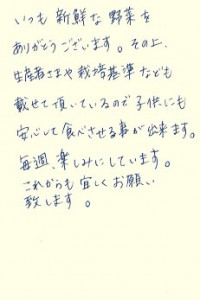 いつも 新鮮な 野菜を
ありがとうございます。その上、
生産者さまや 栽培基準なども
載せて頂いているので子供にも
安心して食べさせる事が出来ます。
毎週、楽しみにしています。
これからも 宜しくお願い
致します。